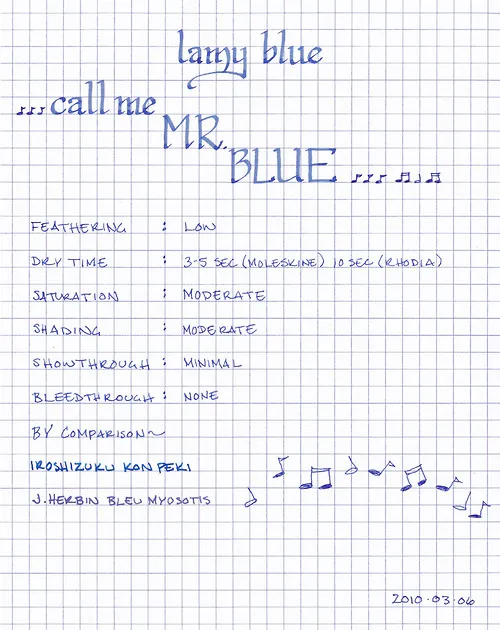 lamy blue
♪♪♪ call me
MR.
BLUE ♪♪♪ ♫♩♫
FEATHERING : LOW
DRY TIME : 3-5 SEC (MOLESKINE) 10 SEC (RHODIA)
SATURATION : MODERATE
SHADING : MODERATE
SHOWTHROUGH : MINIMAL
BLEEDTHROUGH : NONE
BY COMPARISON~
IROSHIZUKU KON PEKI
J. HERBIN BLEU MYOSOTIS
2010·03·06